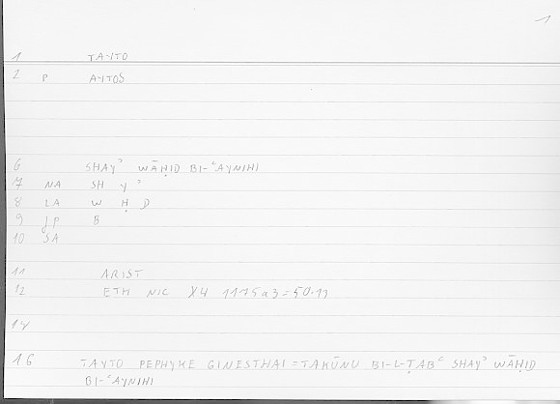 1
1 TAYTO
2 P AYTOS
6 SHAYʾ WĀḤID BI-ʿAYNIHI
7 NA SH Y ʾ
8 LA W Ḥ D
9 JP B
10 SA
11 ARIST
12 ETH NIC 1175a3=50.13
14
16 TAYTO PEPHYKE GINESTHAI = TAKŪNU BI-L-ṬABʿ SHAYʾ WĀḤID
BI-ʿAYNIHI